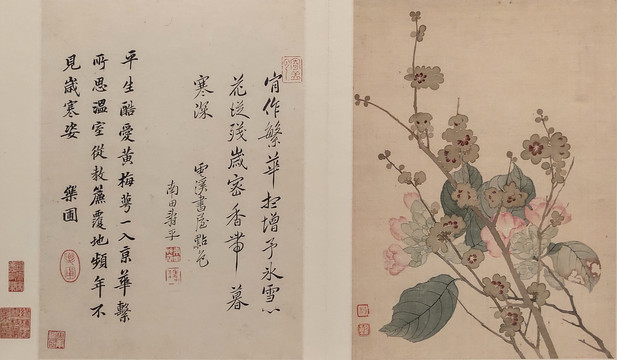 肯作繁華想增予冰雪心
花從殘歲密香帶暮
寒深
雲溪書屋點花
南田壽平
平生酷愛黃梅萼一入京華繫
所思溫室從教簾覆地頻年不
見歲寒姿 樂圃